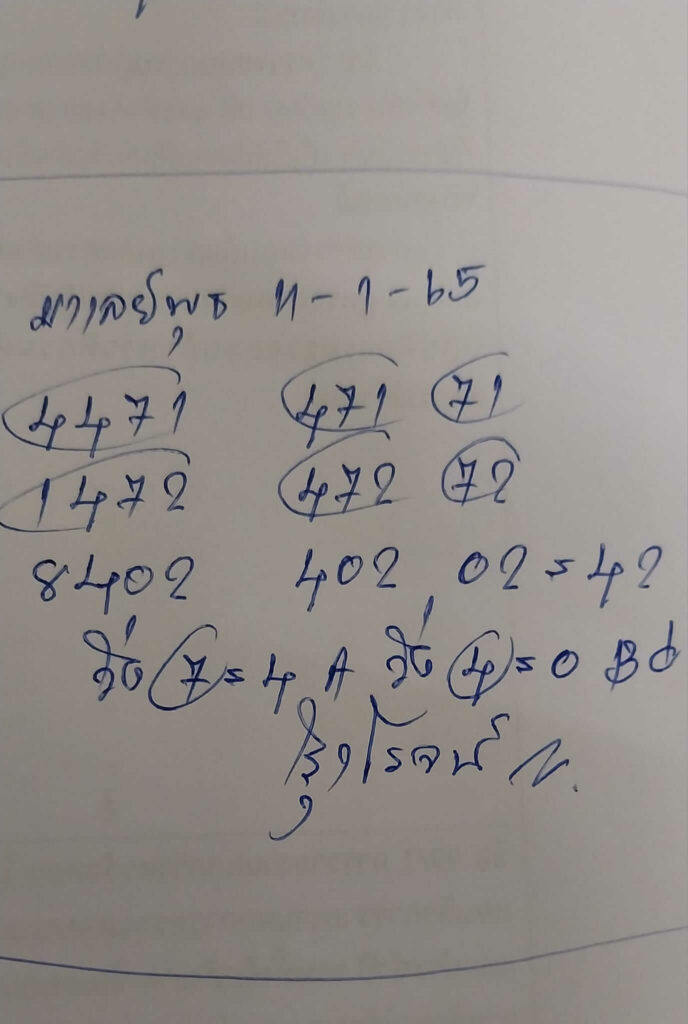 มาเลย์พุธ 11-1-65
4471 471 71
1472 472 72
8402 402 02=42
วิ่ง 7=4 A วิ่ง 4=0 B